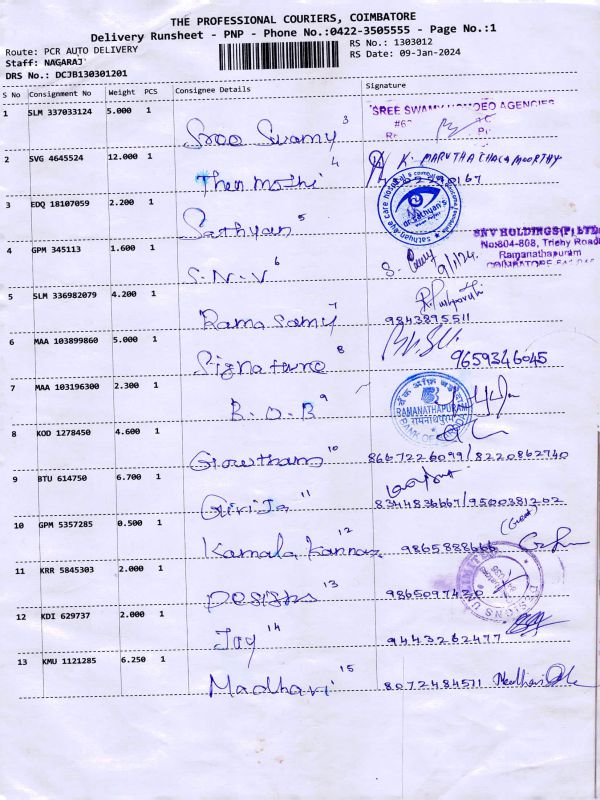 THE PROFESSIONAL COURIERS, COIMBATORE
Delivery Runsheet - PNP - Phone No.:0422-3505555 - Page No.:1
Route: PCR AUTO DELIVERY
RS No.: 1303012
Staff: NAGARAJ
RS Date: 09-Jan-2024
DRS No.: DCJB130301201
S No Consignment No Weight PCS Consignee Details Signature
1 SLM 337033124 5.000 1 Sree Swamy 3
SREE SWAMY HOMOEO AGENCIES
2 SVG 4645524 12.000 1 Then Mozhi 4
K. MARUTHACHALAMOORTHY
3 EDQ 18107059 2.200 1 Sathyan 5
4 GPM 345113 1.600 1 S.N.V 6
9/1/24
SNV HOLDINGS(P) LTD
No:804-808, Trichy Road
Ramanathapuram
5 SLM 336982079 4.200 1 Rama Samy 7
9843895511
6 MAA 103899860 5.000 1 Signature 8
9659346045
7 MAA 103196300 2.300 1 B.O.B 9
RAMANATHAPURAM
8 KOD 1278450 4.600 1 Gowtham 10
8667226099/8220862740
9 BTU 614750 6.700 1 Girija 11
8344836667/9500381202
10 GPM 5357285 0.500 1 Kamala Kannan 12
9865888666
11 KRR 5845303 2.000 1 Designs 13
9865097430
12 KDI 629737 2.000 1 Joy 14
9443262477
13 KMU 1121285 6.250 1 Madhavi 15
8072484511